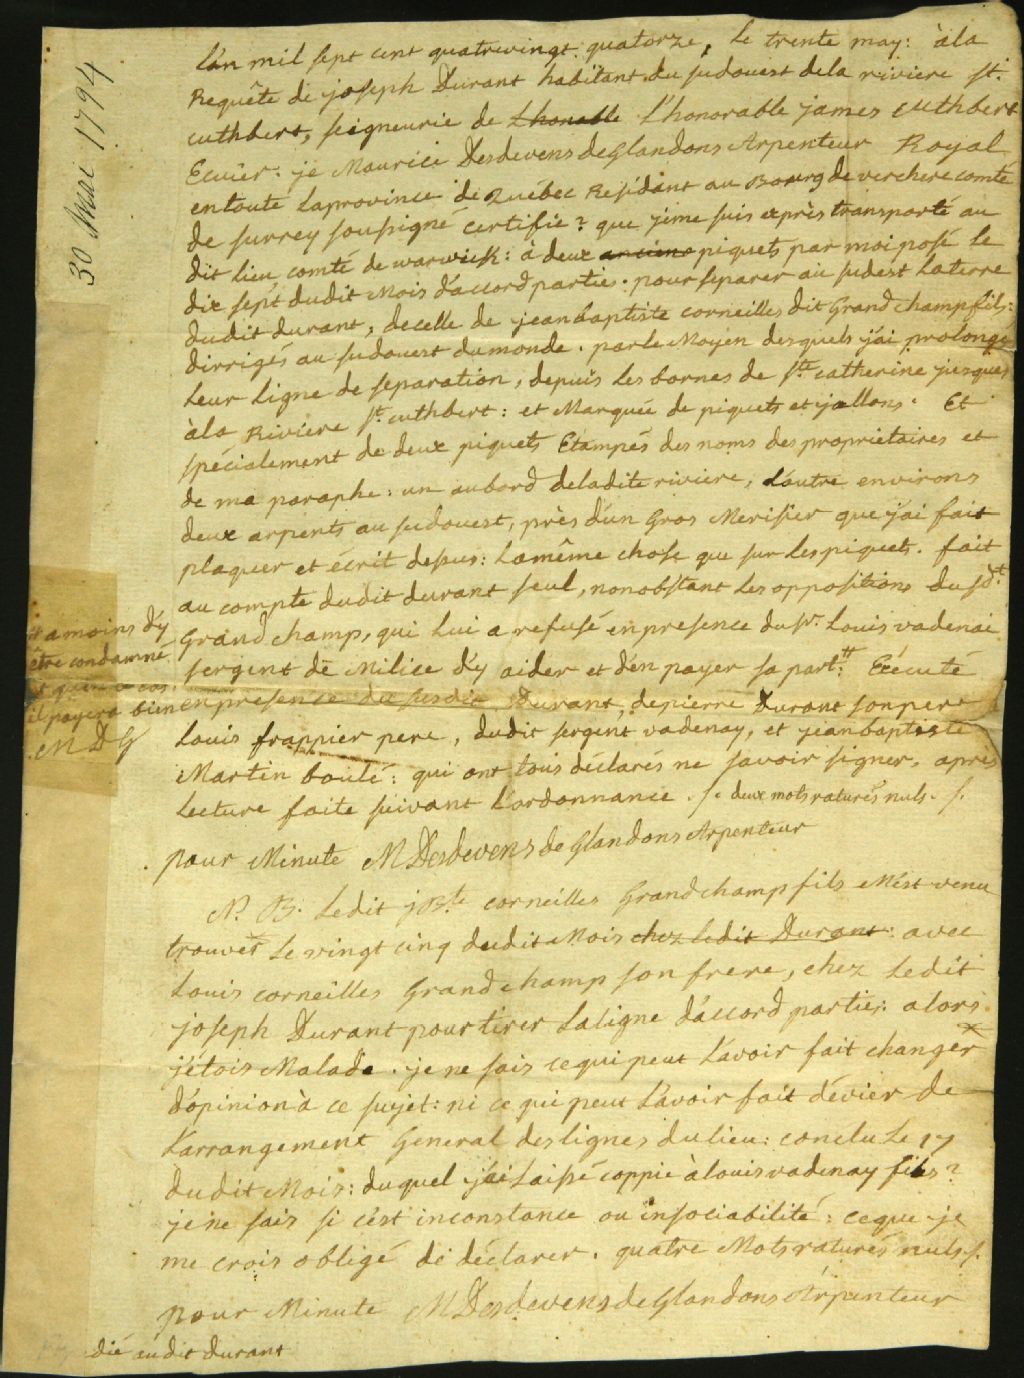 30 Mai 1794
L'an mil sept cent quatrevingt quatorze, le trente may: àla
Requête de joseph Durant habitant du sudouest dela riviere St.
cuthbert, seigneurie de Lhonable L'honorable james cuthbert
Ecuier: je Maurice Desdevens deGlandons Arpenteur Royal
entoute Laprovince de Québec Residant au Bourg de verchere comté
de surrey soussigné certifie? que jeme suis exprès transporté au
dit lieu comté de warwick: à deux anciens piquets par moi posé le
dix sept dudit Mois d'accord parties. pour separer au sudest Laterre
dudit durant, decelle de jeanbaptiste corneilles dit Grandchamp fils:
dirrigés au sudouest dumonde. parle Moyen desquels j'ai prolongé
Leur Ligne de separation, depuis Les bornes de Ste. catherine jusques
àla Riviere St. cuthbert: et Marquée de piquets et jallons. Et
spécialement de deux piquets Etampés des noms des proprietaires et
de ma paraphe: un aubord deladite riviere, L'autre environs
deux arpents au sudouest, près d'un Gros Merisier que j'ai fait
plaquer et écrit dessus: Lamême chose que sur Les piquets. fait
au compte dudit durant seul, nonobstant Les oppositions du sdt.
Grand champ, qui Lui a refusé enpresence du sr. Louis vadenai
sergent de Milice d'y aider et d'en payer sa part: Exécuté
a moins d'y
être condamné
il payera bien
M D G
enpresence du susdit Durant, depierre Durant sonpere
Louis frappier pere, dudit sergent vadenay, et jeanbaptiste
Martin boulé: qui ont tous déclarés ne savoir signer, apres
Lecture faite suivant L'ordonnance. /. deux mots raturés nuls. /.
pour Minute M Desdevens de Glandons Arpenteur
N. B. Ledit jBte. corneilles Grandchamp fils M'est venu
trouver Le vingt cinq dudit Mois chez ledit Durant: avec
Louis corneilles Grand champ son frere, chez Ledit
joseph Durant pour tirer Laligne d'accord parties: alors
j'étois Malade. je ne sais ce qui peut L'avoir fait changer
d'opinion à ce sujet: ni ce qui peut L'avoir fait dévier de
L'arrangement General des lignes du lieu: conclu Le 17
dudit Mois: duquel j'ai Laissé coppie à louis vadenay fils?
je ne sais si c'est inconstance ou insociabilité: ceque je
me crois obligé de déclarer. quatre Mots raturés nuls /.
pour Minute M Desdevens de Glandons Arpenteur
dié audit durant